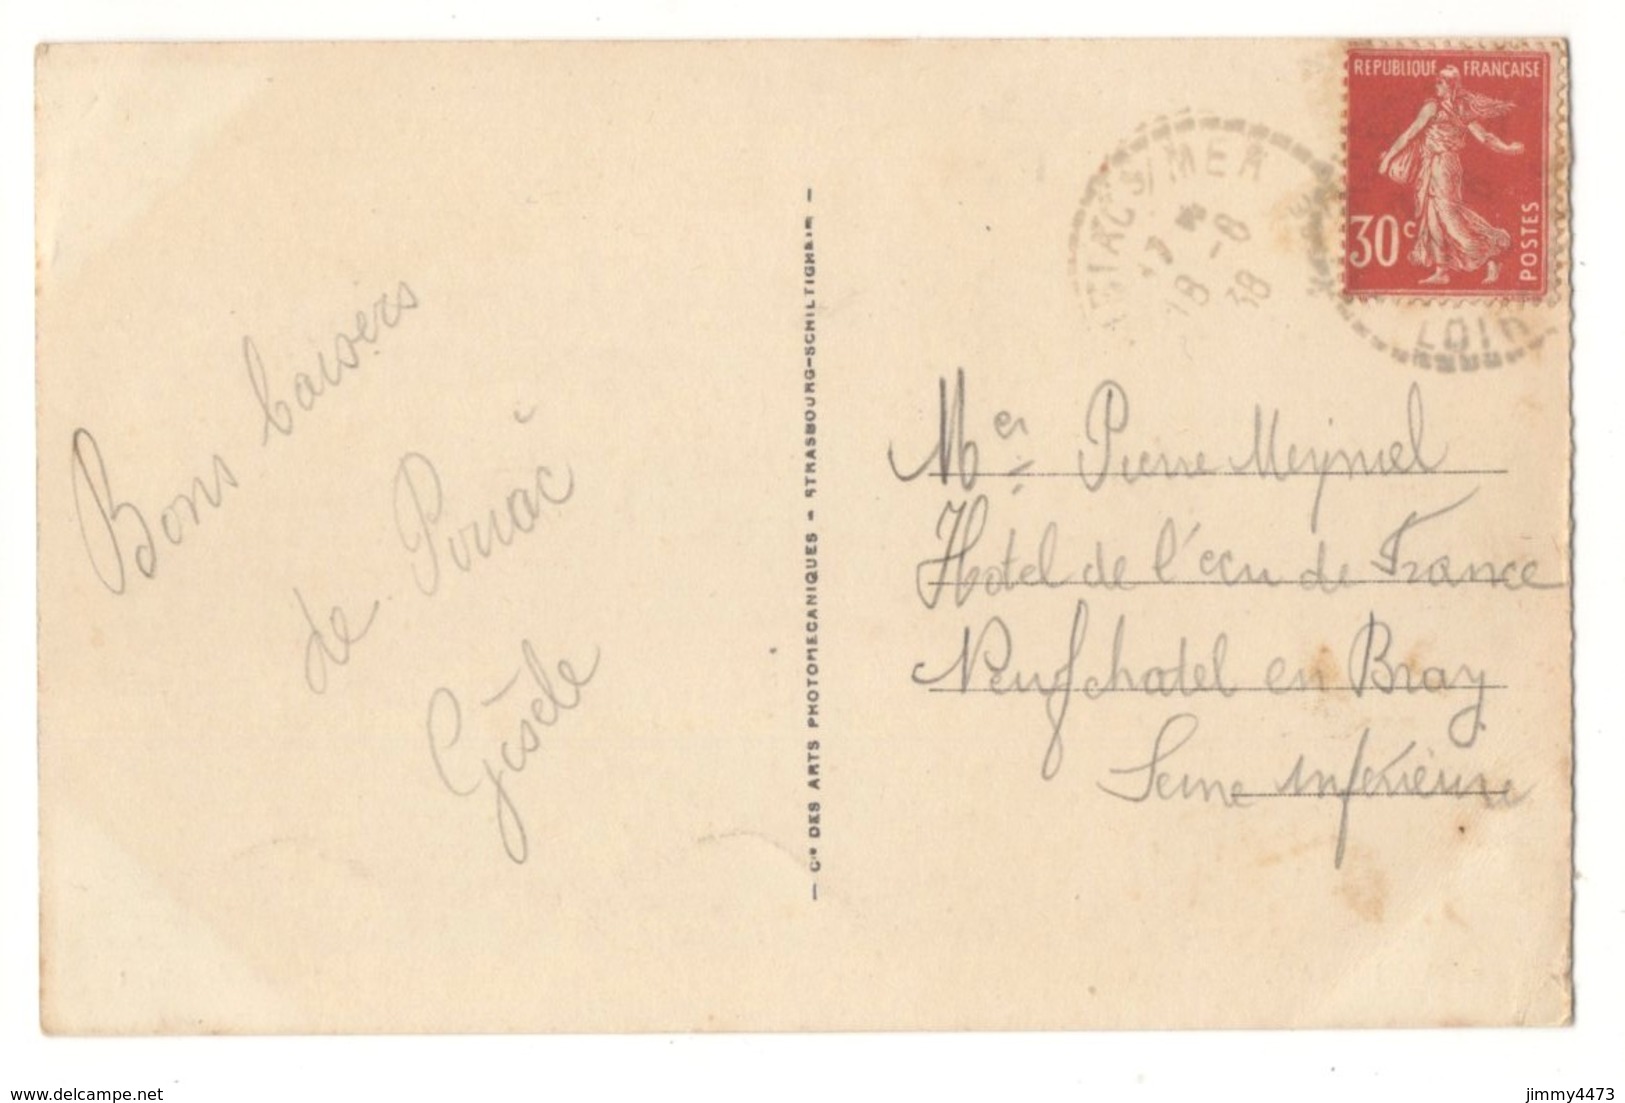 Bons baisers
de Pouac
Gisèle
— Cie DES ARTS PHOTOMECANIQUES — STRASBOURG-SCHILTIGHEIM —
REPUBLIQUE FRANÇAISE
30c
POSTES
S/MER
17
18 -8
38
LOIR
Mer Pierre Meyniel
Hotel de l'écu de France
Neufchatel en Bray
Seine inférieure
www.delcampe.net
jimmy4473